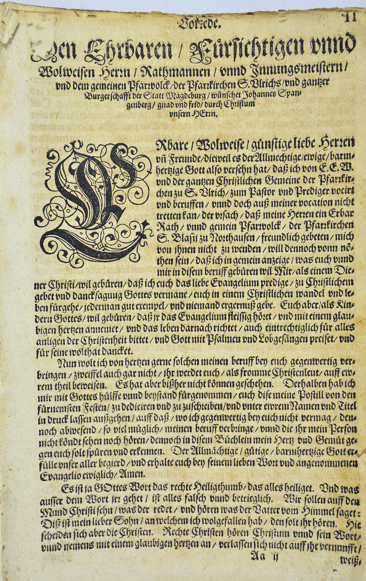 Vorrede.
11
Den Ehrbaren / Fürsichtigen vnnd
Wolweisen Herrn / Rathmannen / vnnd Innungsmeistern /
vnd dem gemeinen Pfarwolck / der Pfarkirchen S. Vlrichs / vnd gantzer
Burgerschafft der Statt Magdeburg / wünschet Johannes Span-
genberg / gnad vnd frid / durch Christum
vnsern HErrn.
ERbare / Wolweise / günstige liebe Herren
vñ Freunde / dieweil es der Allmechtige / ewige / barm-
hertzige Gott also versehn hat / daß ich von E. E. W.
vnd der gantzen Christlichen Gemeine der Pfarkir-
chen zu S. Vlrich / zum Pastor vnd Prediger vociert
vnd beruffen / vnnd doch auß meiner vocation nicht
tretten kan / der vrsach / daß meine Herren ein Erbar
Rath / vnnd gemein Pfarwolck / der Pfarkirchen
S. Blasij zu Northausen / freundlich gebeten / mich
von jhnen nicht zu wenden / will dennoch vonn nö-
then sein / daß ich in gemein anzeige / was euch vnnd
mir in diesen beruff gebüren wil. Mir / als einem Die-
ner Christi / wil gebüren / daß ich euch das liebe Euangelium predige / zu Christlichem
gebet vnd dancksagung Gottes vermane / euch in einem Christlichen wandel vnd le-
ben fürgehe / jederman gut exempel / vnd niemand ergernuß gebe. Euch aber / als Kin-
dern Gottes / wil gebüren / daß jr das Euangelium fleissig höret / vnd mit einem glau-
bigen hertzen annemet / vnd das leben darnach richtet / auch eintrechtiglich für alles
anligen der Christenheit bittet / vnd Gott mit Psalmen vnd Lobgesängen preiset / vnd
für seine wolthat dancket.
Nun wolt ich von hertzen gerne solchen meinen beruff bey euch gegenwertig ver-
bringen / zweiffel auch gar nicht / jhr werdet euch / als fromme Christenleut / auff ew-
rem theil beweisen. Es hat aber bißher nicht können geschehen. Derhalben hab ich
mir mit Gottes hülffe vnnd beystand fürgenommen / euch dise meine Postill von den
fürnemsten Festen / zu dediciren vnd zuzuschreiben / vnd vnter ewrem Namen vnd Titel
in druck lassen außgehen / auff daß / wo ich gegenwertig bey euch nicht vermag / den-
noch abwesend / so viel müglich / meinen beruff verbringe / vnnd die jhr mein Person
nicht köndt sehen noch hören / dennoch in disem Büchlein mein Hertz vnd Gemüt ge-
gen euch solt spüren vnd erkennen. Der Allmächtige / gütige / barmhertzige Gott er-
fülle vnser aller begierd / vnd erhalte euch bey seinem lieben Wort vnd angenommenen
Euangelio ewiglich / Amen.
Es ist ja GOttes Wort das rechte Heiligthumb / das alles heiliget. Vnd was
ausser dem Wort her gehet / ist alles falsch vnnd betrieglich. Wir sollen auff den
Mund Christi sehn / was der redet / vnd hören was der Vatter vom Himmel saget:
Diß ist mein lieber Sohn / an welchem ich wolgefallen hab / den solt jhr hören. Hie
scheiden sich aber die Christen. Rechte Christen hören Christum vnnd sein Wort /
vnnd nemens mit einem glaubigen hertzen an / verlassen sich nicht auff jhr vernunfft /
Aa ij
weiß,